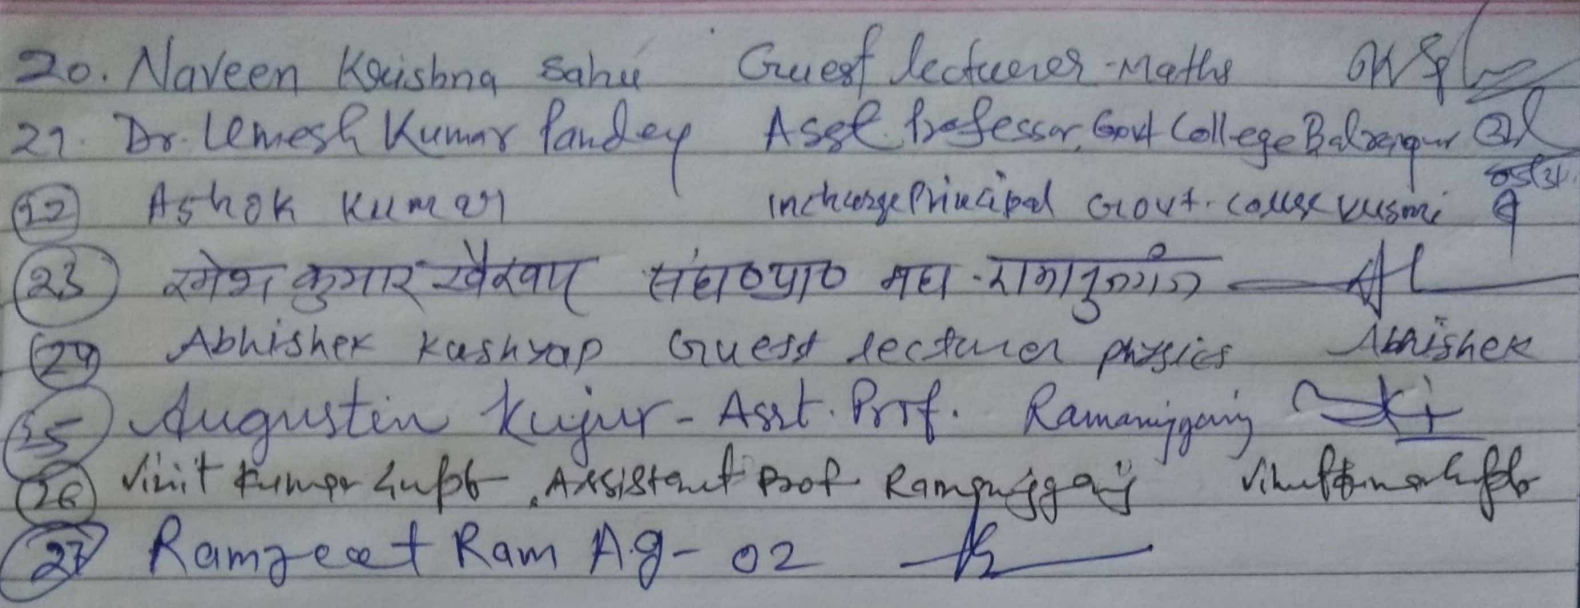 20. Naveen Krishna Sahu Guest lecturer - Maths
21. Dr. Umesh Kumar Pandey Asst. Professor, Govt College Balrampur
22 Ashok Kumar Incharge Principal Govt. College Kusmi
23 रमेश कुमार खैरवार महा. रामानुजगंज
24 Abhishek Kashyap Guest lecturer physics Abhishek
25 Augustin Kujur - Asst. Prof. Ramanujganj
26 Vinit Kumar Gupta, Assistant Prof Ramanujganj Vinit Kumar Gupta
27 Ramjeet Ram A.g - 02